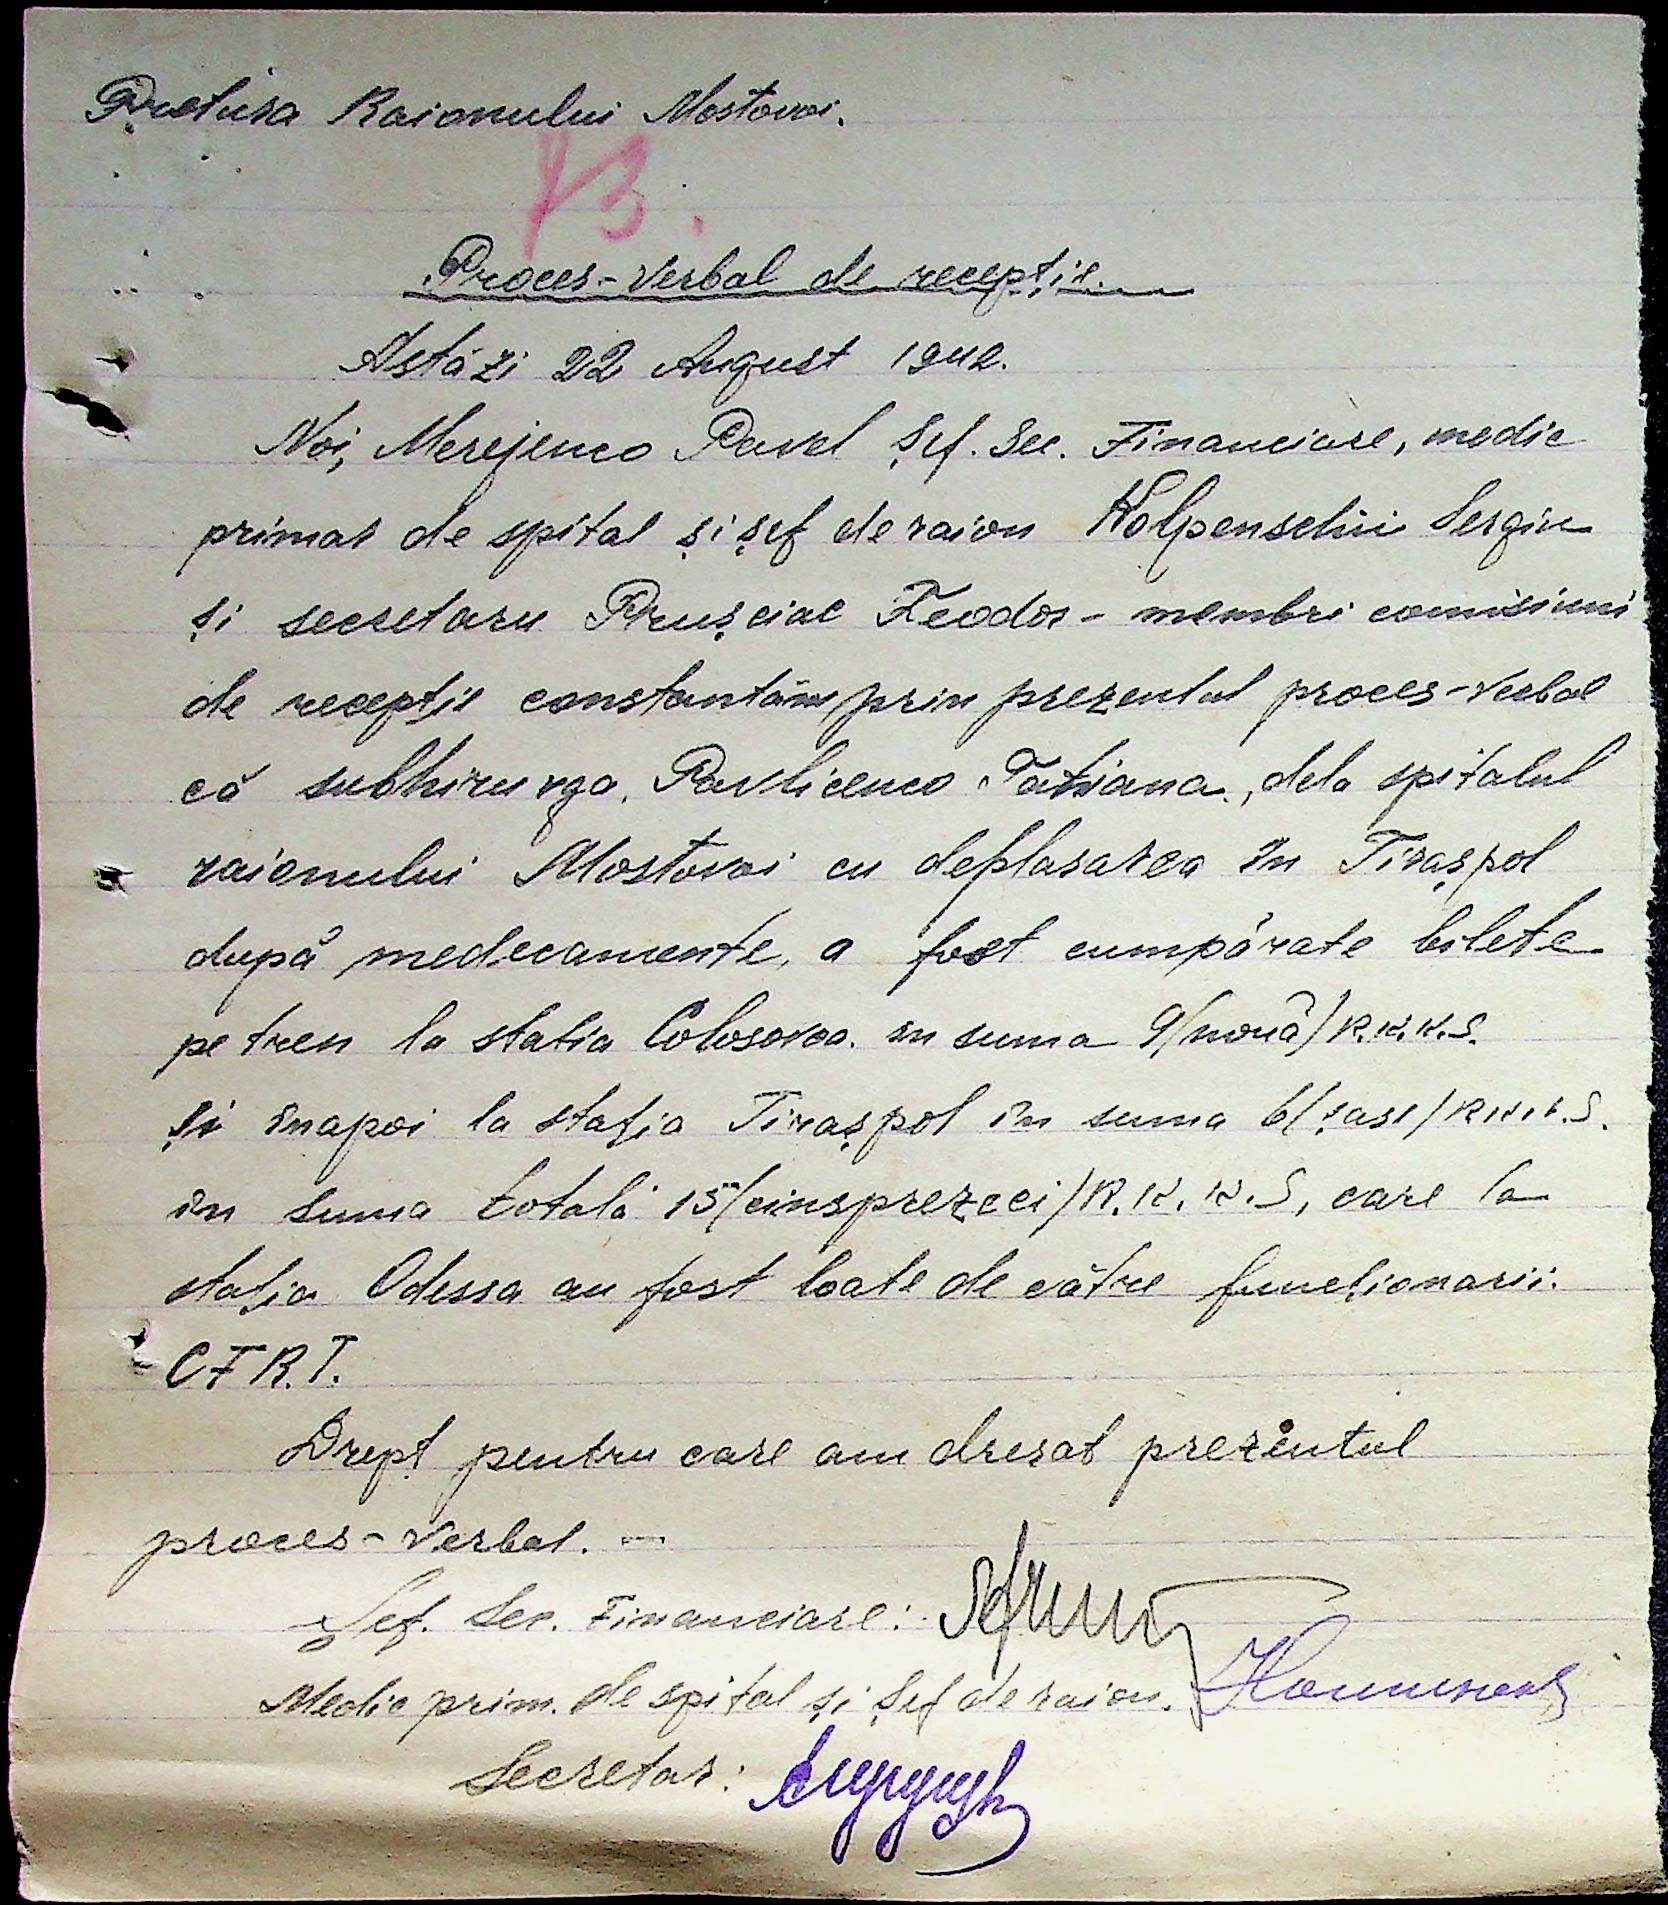 Pretura Raionului Mostovoi.
13.
Proces-Verbal de recepţie.
Astăzi 22 August 1942.
Noi, Merejenco Pavel Şef. Sec. Financiare, medic
primar de spital şi şef de raion Sergiu
şi secretaru Pruşciac Feodor - membri comisiuni
de recepţie constantăm prin prezentul proces-verbal
că subhirurga, Pavlicenco Tatiana, dela spitalul
raionului Mostovoi cu deplasarea în Tiraşpol
după medecamente, a fost cumpărate bilete
pe tren la statia Colosovca. în suma 9/nouă/R.K.K.S.
şi înapoi la staţia Tiraşpol în suma 6/şase/R.K.K.S.
în suma totală 15/cinsprezeci/R.K.K.S, care la
staţia Odessa au fost loate de către funcţionarii:
CFR.T.
Drept pentru care am dresat prezentul
proces-verbal. -
Şef. Sec. Financiare:
Medic prim. de spital şi Şef de raion.
Secretar: